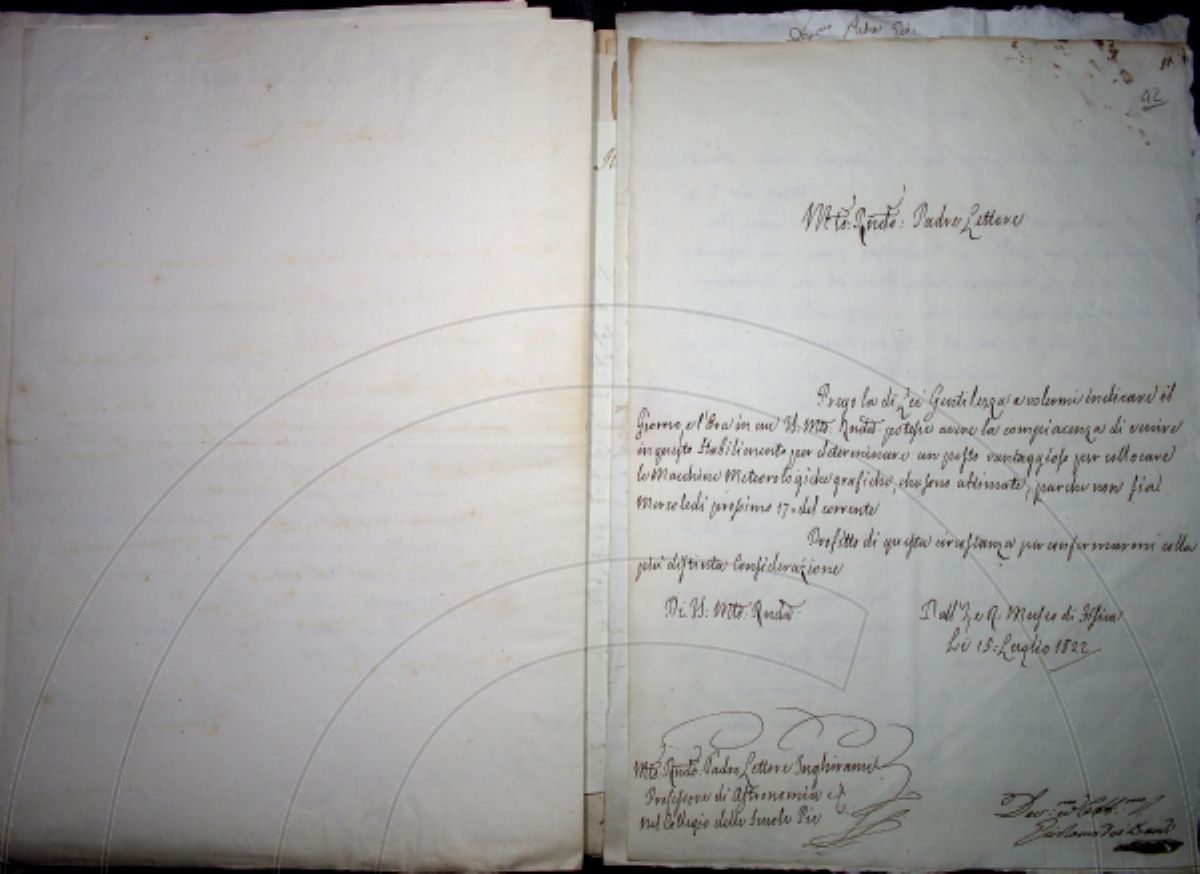 Padre
42
Mto: Rndo: Padre Lettore
Prego la di Lei Gentilezza a volermi indicare il
Giorno, e l'Ora in cui V: Mto: Rnda potesse avere la compiacenza di venire
in questo Stabilimento per determinare un posto vantaggioso per collocare
le Macchine Meteorologichegrafiche, che sono ultimate; purche non sia
Mercoledi prossimo 17. del corrente
Profitto di questa circostanza per confermarmi colla
più distinta Considerazione
Di V: Mto: Rnda:
Dall' I. e R. Museo di Fisica
Li 15: Luglio 1822
Mto: Rndo: Padre Lettore Inghirami
Professore di Astronomia e
Nel Collegio delle Scuole Pie
Dev: ed Obb:
Girolamo de' Bardi